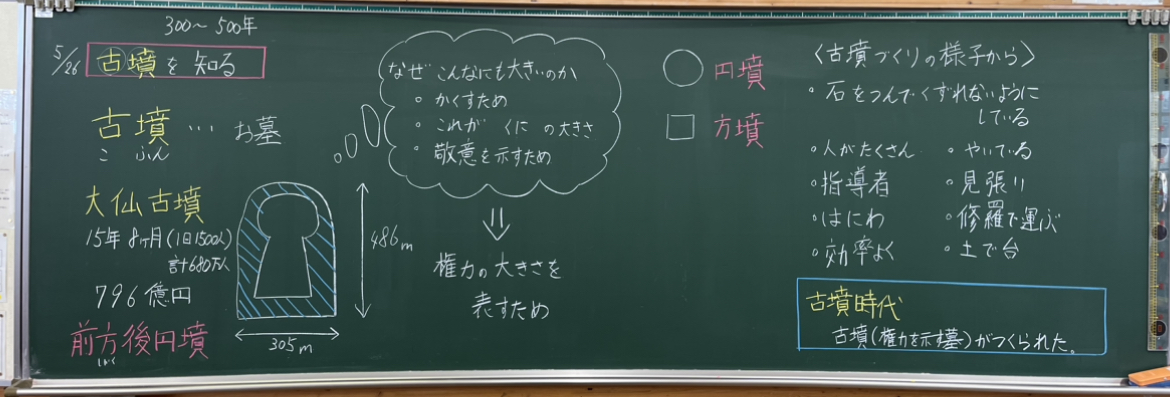 300〜500年
5/26
古墳を知る
古墳…お墓
こ ふん
大仙古墳
15年8ヶ月(1日1500人)
計680万人
796億円
前方後円墳
486m
305m
なぜこんなにも大きいのか
。かくすため
。これが くに の大きさ
。敬意を示すため
権力の大きさを
表すため
円墳
方墳
〈古墳づくりの様子から〉
・石をつんでくずれないように
している
・人がたくさん
・指導者
・はにわ
・効率よく
・やいている
・見張り
・修羅で運ぶ
・土で台
古墳時代
古墳(権力を示す墓)がつくられた。